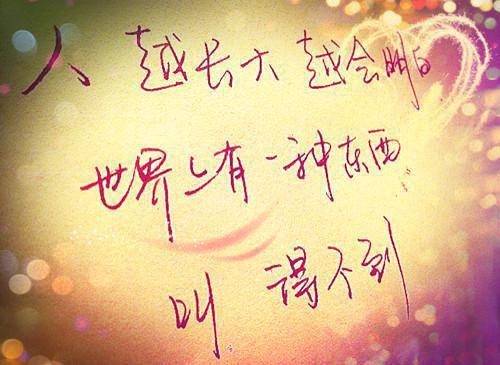 人越长大越会明白
世界上有一种东西
叫 得不到